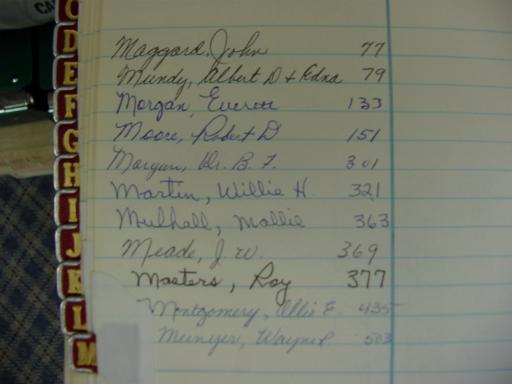 CA
C
D
E
F
G
H
I
J
K
L
M
Maggard, John 77
Mundy, Albert D & Edna 79
Morgan, Everett 133
Moore, Robert D 151
Morgan, Dr. B. F. 301
Martin, Willie H. 321
Mulhall, Mollie 363
Meade, J. W. 369
Masters, Roy 377
Montgomery, Ollie E. 435
Wayne 503